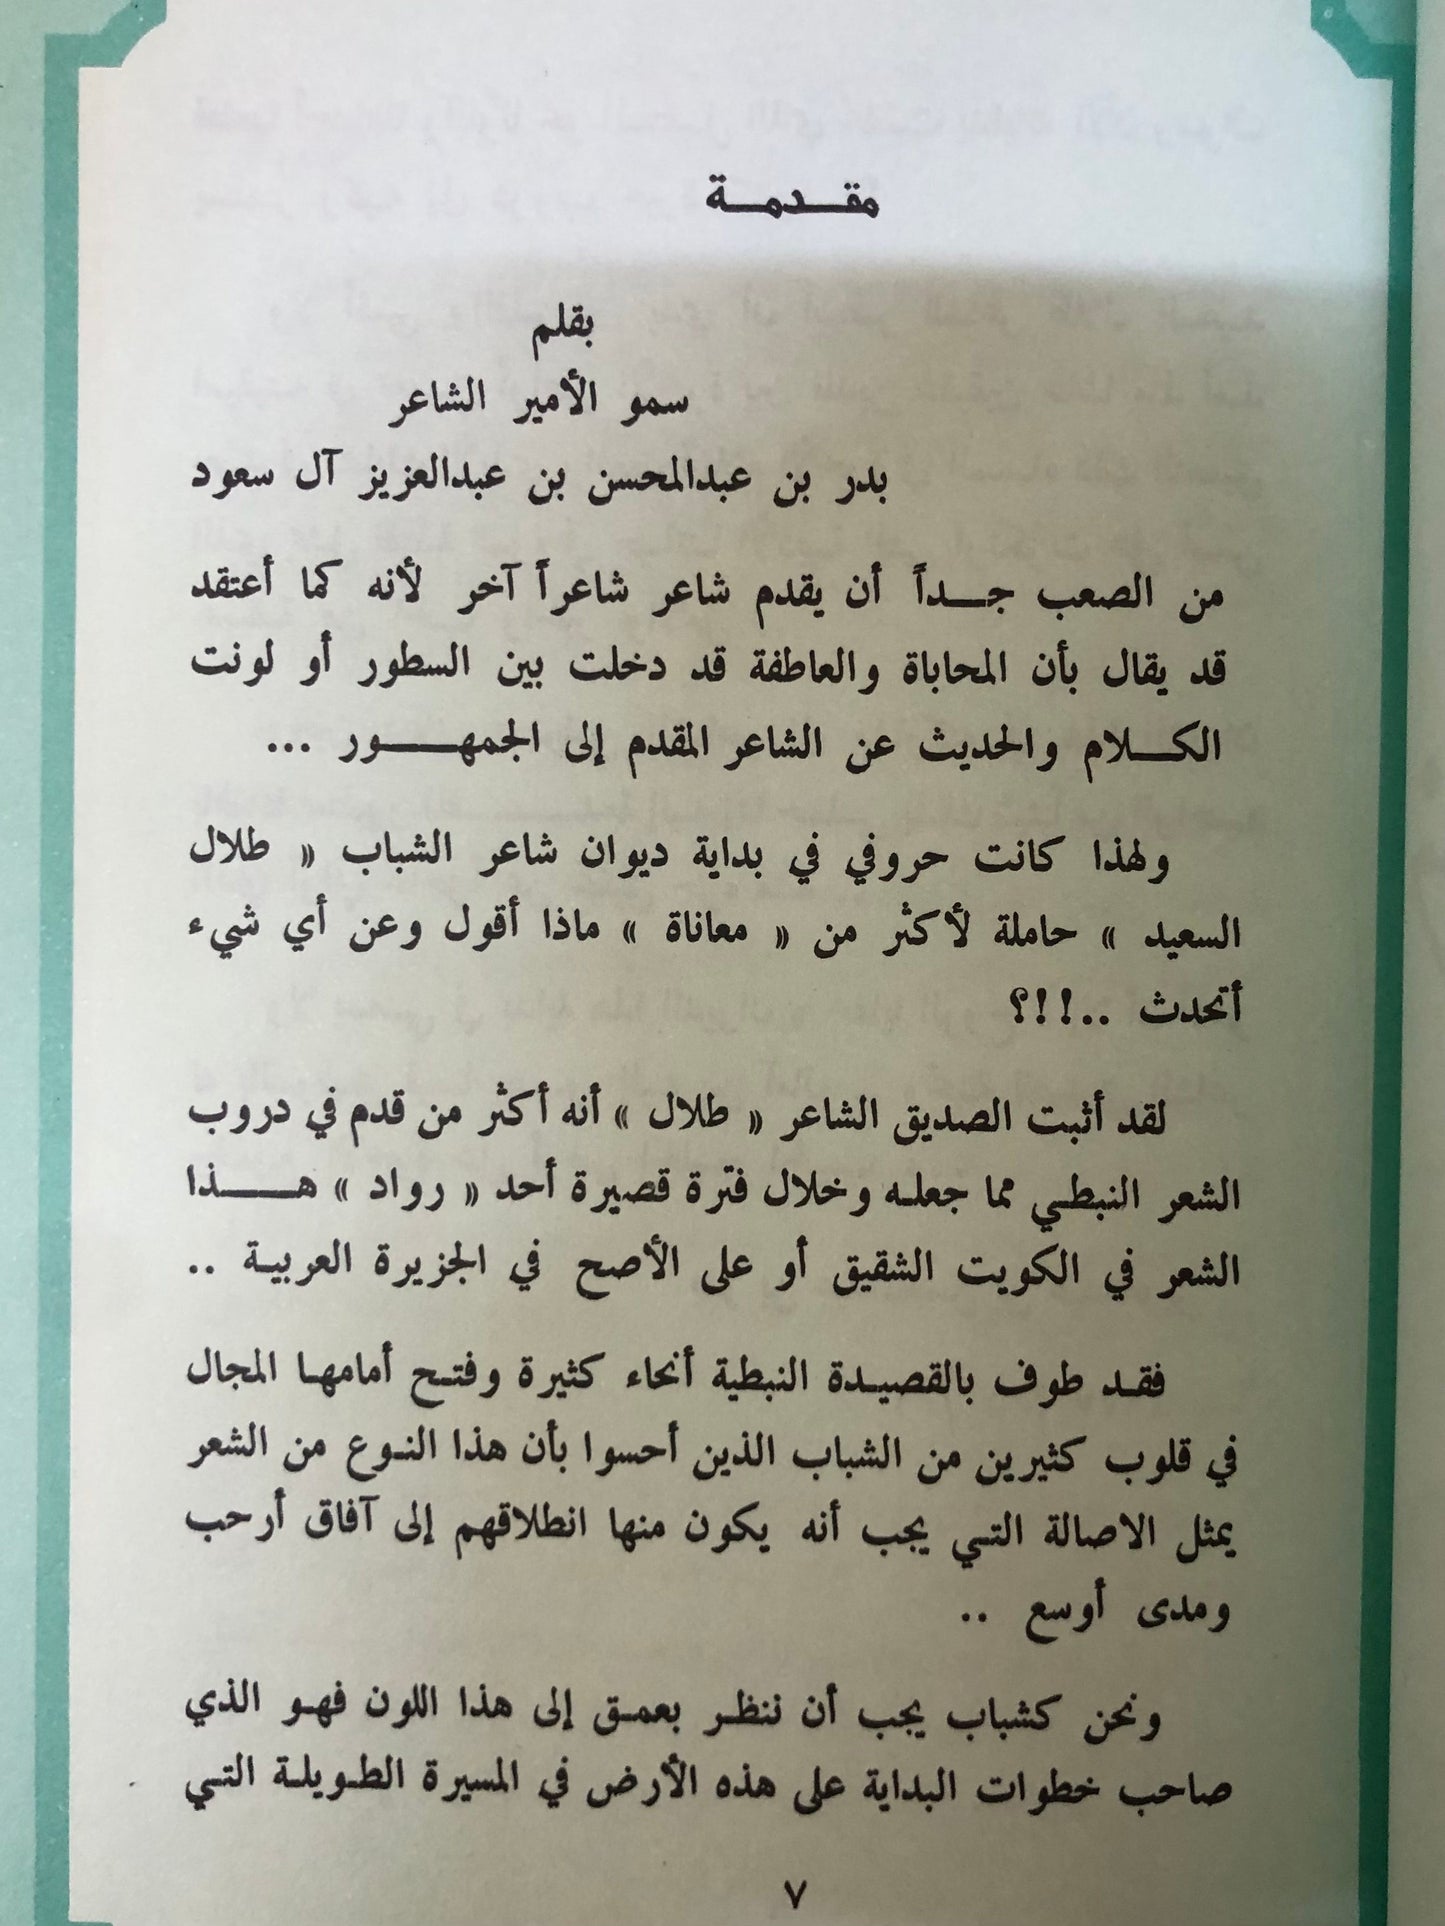 مقدمة
بقلم
سمو الأمير الشاعر
بدر بن عبدالمحسن بن عبدالعزيز آل سعود
من الصعب جداً أن يقدم شاعر شاعراً آخر لأنه كما أعتقد
قد يقال بأن المحاباة والعاطفة قد دخلت بين السطور أو لونت
الكلام والحديث عن الشاعر المقدم إلى الجمهور ...
ولهذا كانت حروفي في بداية ديوان شاعر الشباب « طلال
السعيد » حاملة لأكثر من « معاناة » ماذا أقول وعن أي شيء
أتحدث ..!!؟
لقد أثبت الصديق الشاعر « طلال » أنه أكثر من قدم في دروب
الشعر النبطي مما جعله وخلال فترة قصيرة أحد « رواد » هذا
الشعر في الكويت الشقيق أو على الأصح في الجزيرة العربية ..
فقد طوف بالقصيدة النبطية أنحاء كثيرة وفتح أمامها المجال
في قلوب كثيرين من الشباب الذين أحسوا بأن هذا النوع من الشعر
يمثل الاصالة التي يجب أنه يكون منها انطلاقهم إلى آفاق أرحب
ومدى أوسع ..
ونحن كشباب يجب أن ننظر بعمق إلى هذا اللون فهو الذي
صاحب خطوات البداية على هذه الأرض في المسيرة الطويلة التي
٧